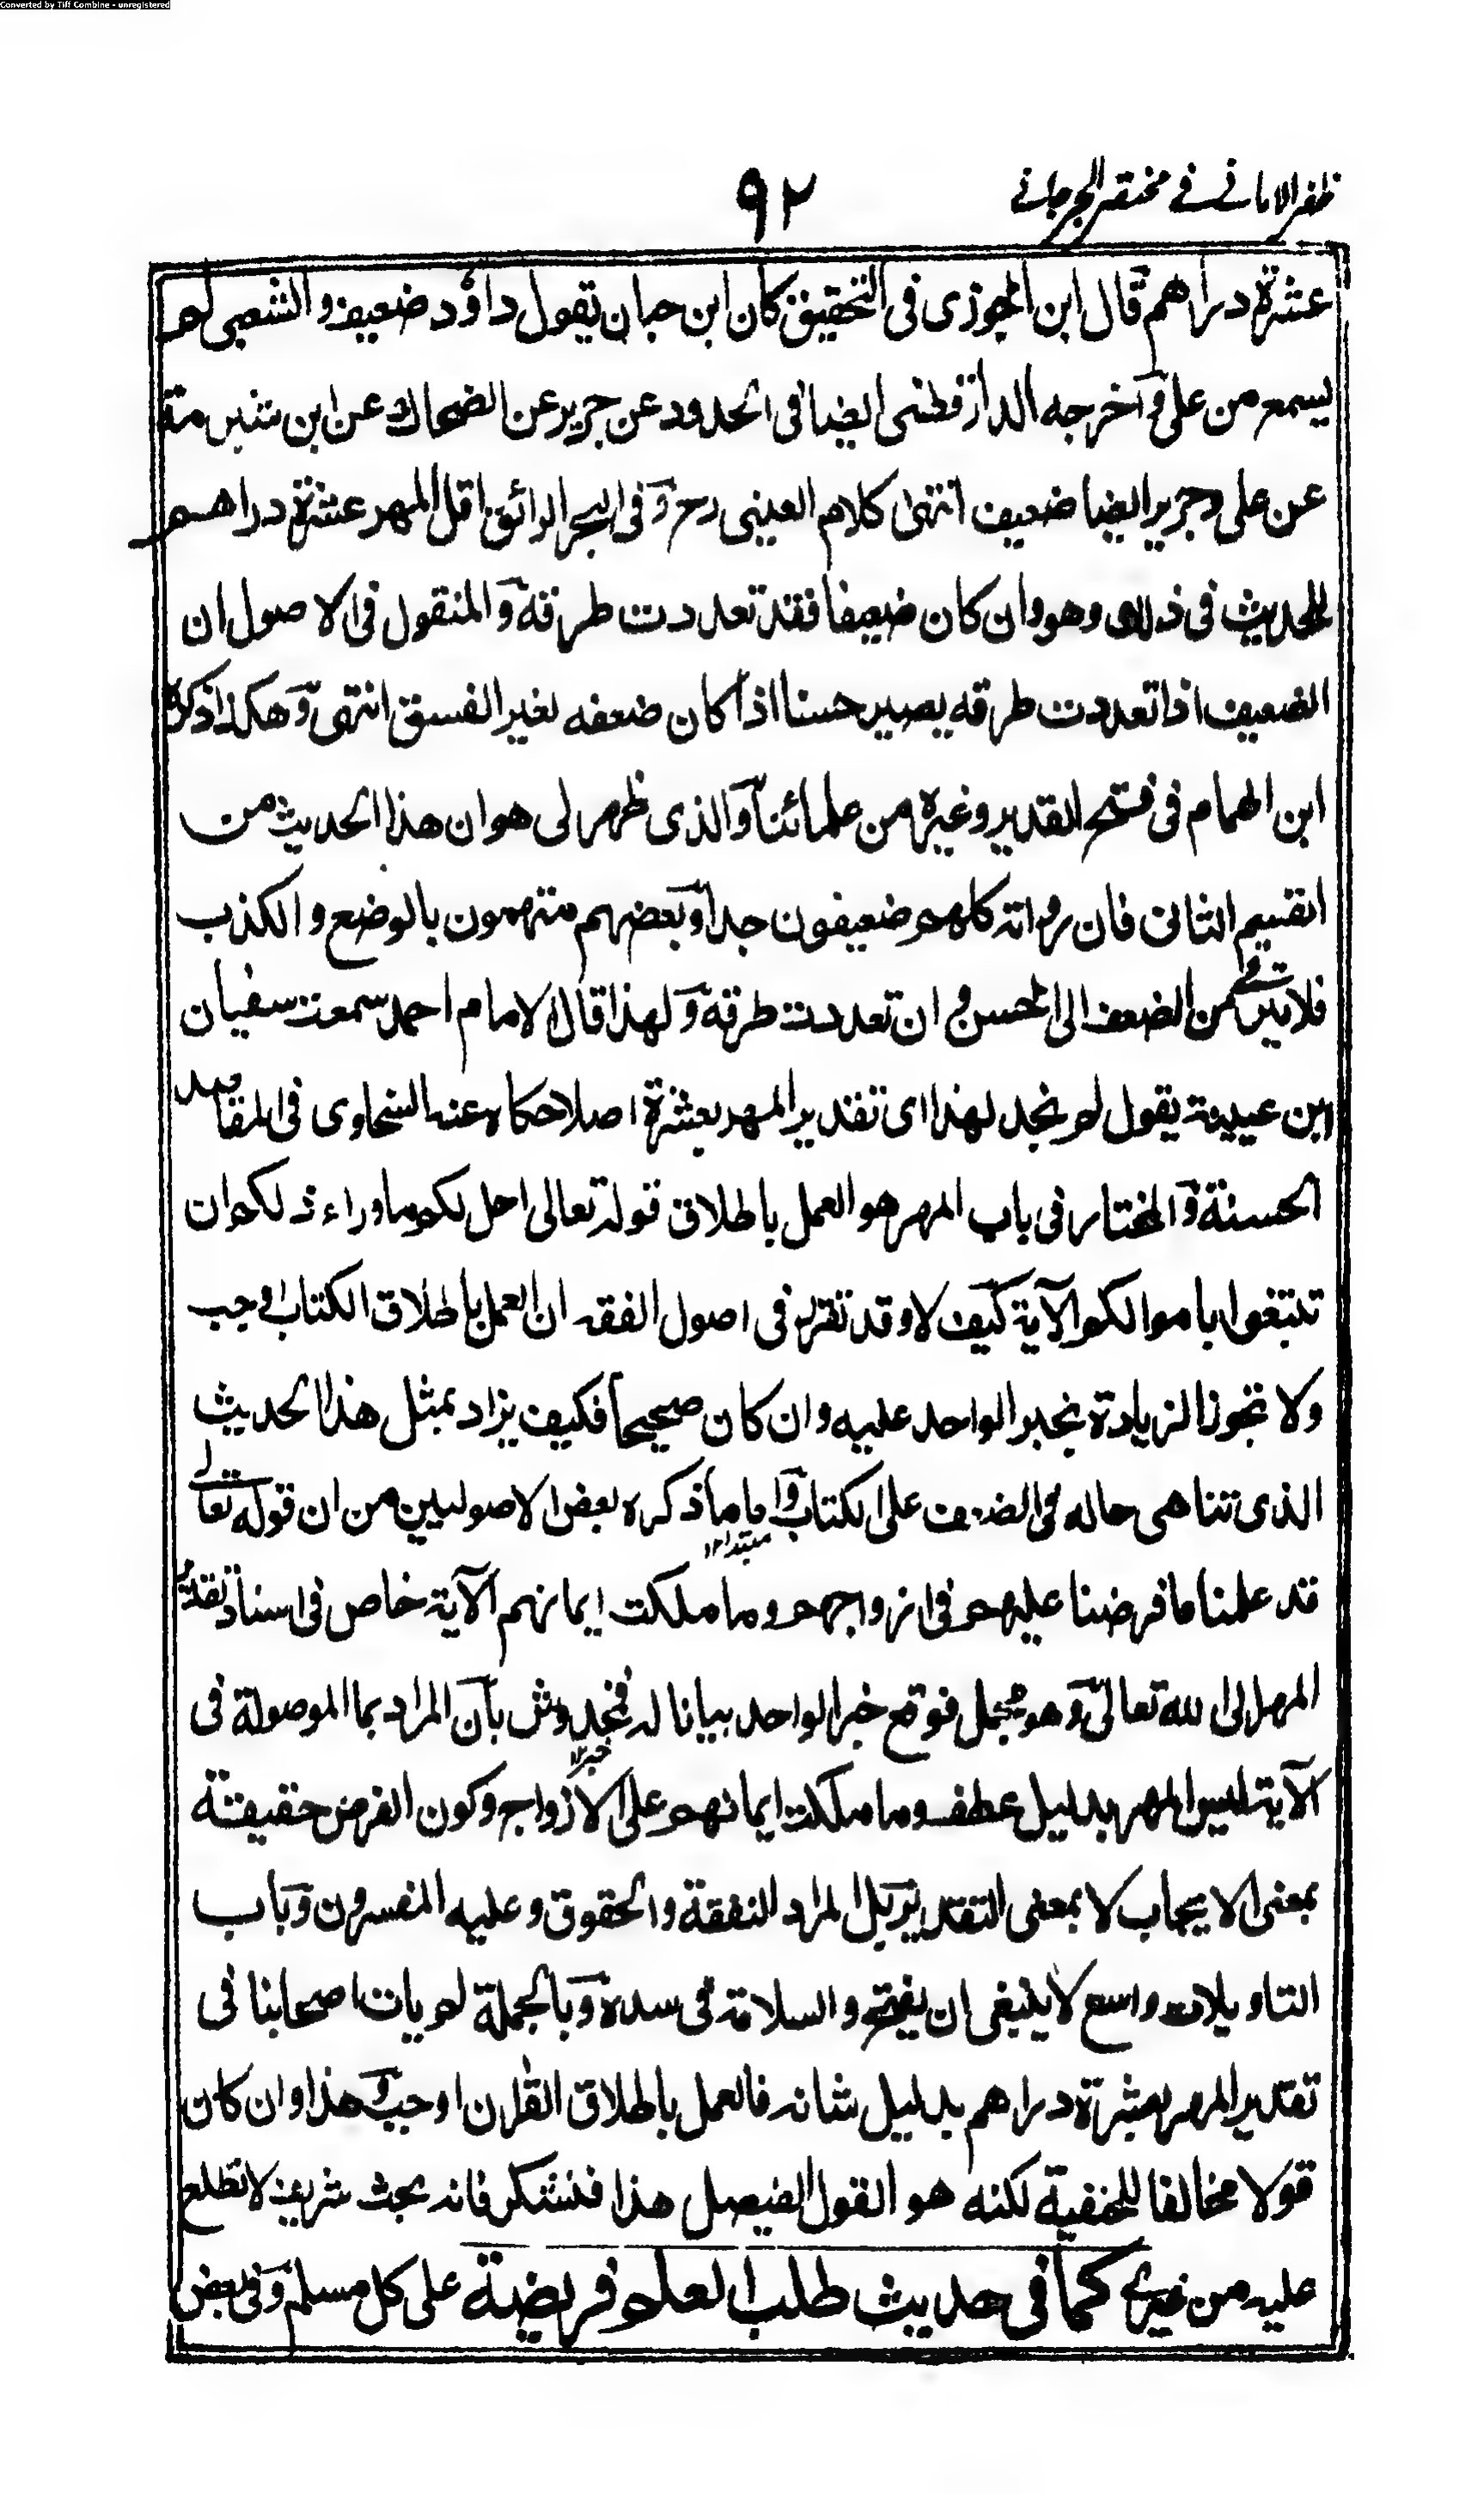 Converted by Tiff Combine - unregistered
ظفر الاماني في مختصر الجرجاني
٩٢
عشرة دراهم قال ابن الجوزى فى التحقيق كان ابن حبان يقول داؤد ضعيف والشعبى لم
يسمع من على وآخرجه الدارقطنى ايضا فى الحدود عن جرير عن الضحاك عن ابن
عن على وجرير ايضا ضعيف انتهى كلام العينى رح وفى البحر الرائق اقل المهر عشرة دراهم
للحديث فى ذلك وهو وان كان ضعيفا فقد تعددت طرقه والمنقول فى الاصول ان
الضعيف اذا تعددت طرقه يصير حسنا اذا كان ضعفه لغير الفسق انتهى وهكذا ذكره
ابن الهمام فى فتح القدير وغيره من علمائنا والذى ظهر لى هو ان هذا الحديث من
القسم الثانى فان رواته كلهم ضعيفون جدا وبعضهم متهمون بالوضع والكذب
فلا يترقى من الضعف الى الحسن وان تعددت طرقه ولهذا قال الامام احمد سمعت سفيان
ابن عيينة يقول لم نجد لهذا اى تقدير المهر بعشرة اصلا حكاه عنه السخاوى فى المقاصد
الحسنة والمختار فى باب المهر هو العمل باطلاق قوله تعالى احل لكم ما وراء ذلكم ان
تبتغوا باموالكم الآية كيف لا وقد تقرر فى اصول الفقه ان العمل باطلاق الكتاب اوجب
ولا تجوز الزيادة بخبر الواحد عليه وان كان صحيحا فكيف يزاد بمثل هذا الحديث
الذى تناهى حاله فى الضعف على الكتاب واما ما ذكره بعض الاصوليين من ان قوله تعالى
مبتدا ١٢
قد علمنا ما فرضنا عليهم فى ازواجهم وما ملكت ايمانهم الآية خاص فى اسناد تقدير
المهر الى الله تعالى وهو مجمل فوقع خبر الواحد بيانا له فمخدوش بان المراد بما الموصولة فى
خبر ١٢
الآية ليس المهر بدليل عطف وما ملكت ايمانهم على الازواج وكون الفرض حقيقة
بمعنى الايجاب لا بمعنى التقدير بل المراد النفقة والحقوق وعليه المفسرون وباب
التاويلات واسع لا ينبغى ان يفتح والسلامة فى سده وبالجملة لم يات اصحابنا فى
تقدير المهر بعشرة دراهم بدليل شانه فالعمل باطلاق القرٰان اوجب وهذا وان كان
قولا مخالفا للحنفية لكنه هو القول الفيصل هذا فتشكر فانه بحث شريف لا تطلع
عليه من غيرى كما فى حديث طلب العلم فريضة على كل مسلم وفى بعض